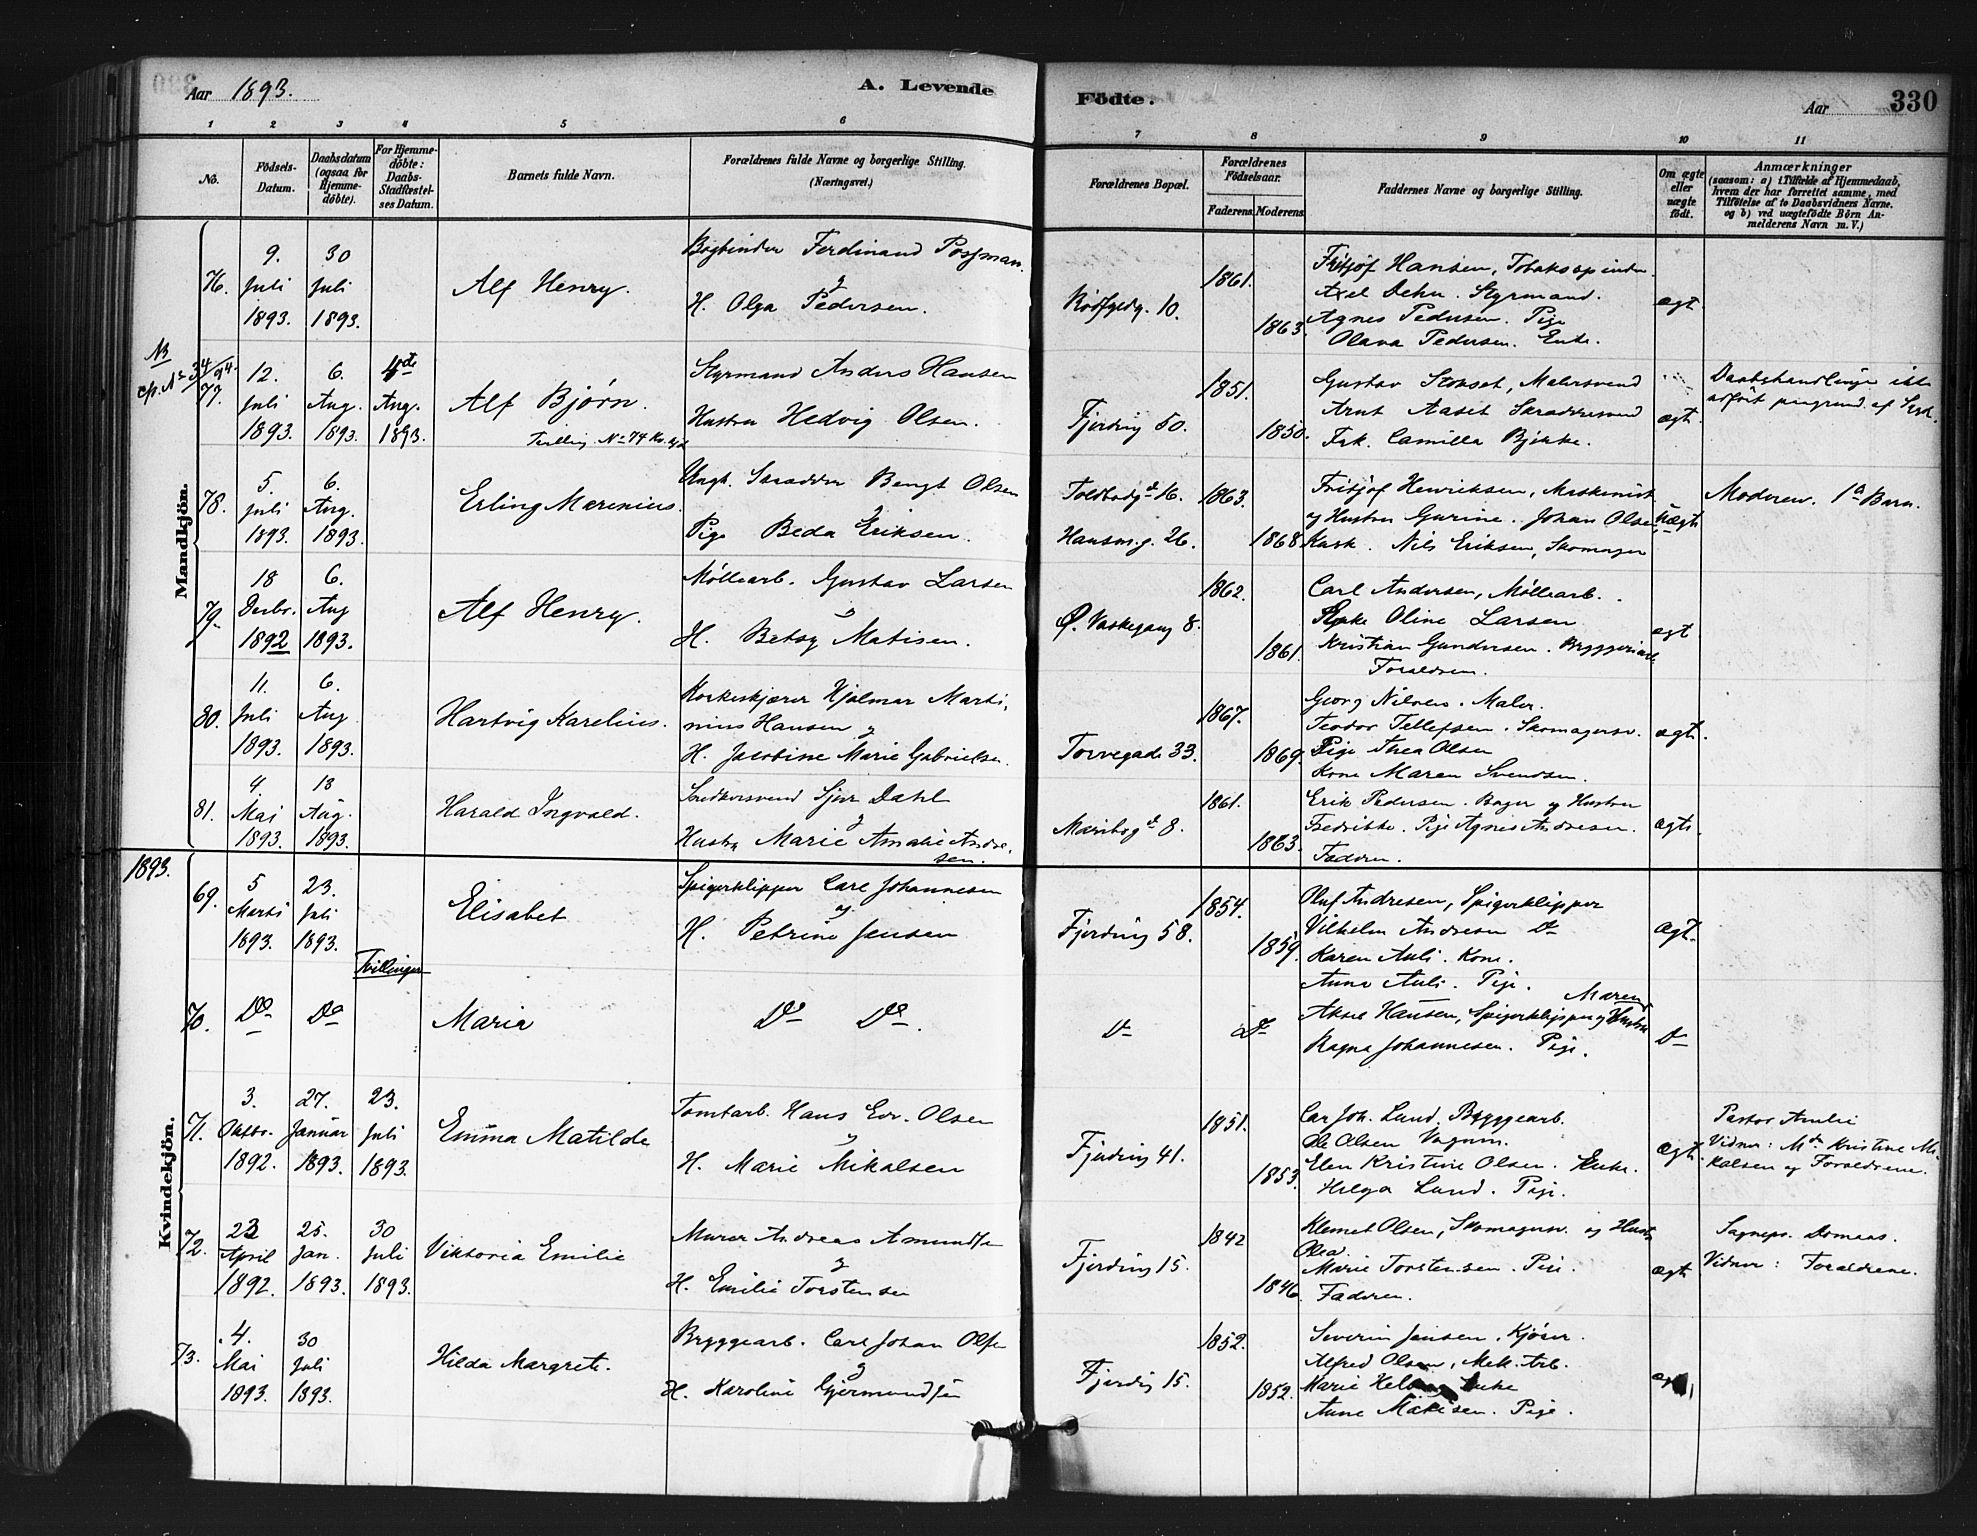 Aar 1893.
A. Levende
Födte.
Aar
330
1 2 3 4 5 6 7 8 9 10 11
No.
Födsels-
Datum.
Daabsdatum
(ogsaa for
Hjemme-
döbte).
For Hjemme-
döbte:
Daabs-
Stadfæstel-
ses Datum.
Barnets fulde Navn.
Forældrenes fulde Navne og borgerlige Stilling.
(Næringsvei.)
Forældrenes Bopæl.
Forældrenes
Födselsaar.
Faderens. Moderens.
Faddernes Navne og borgerlige Stilling.
Om ægte
eller
uægte
födt.
Anmærkninger
(saasom: a) i Tilfælde af Hjemmedaab,
hvem der har forrettet samme, med
Tilföielse af to Daabsvidners Navne.
og b) ved uægtefödte Börn An-
melderens Navn m. V.)
Mandkjön.
76.
9.
Juli
1893.
30
Juli
1893.
Alf Henry.
Bogbinder Ferdinand
og
H. Olga Pedersen.
10.
1861.
1863.
Fritjof Hansen,
Axel Dehn. Styrmand.
Agnes Pedersen. Pige
Olava Pedersen. Enke.
ægt
NB
cfr. No 34/94.
77.
12.
Juli
1893.
6.
Aug.
1893.
Aug.
1893.
Alf Bjørn.
Tvilling No 74
Styrmand Anders Hansen
Hustru Hedvig Olsen.
Fjerding 50.
1851.
1850.
Gustav Stokset, Malersvend
Arnt Aaset Skræddersvend
Frk. Camilla Bjerke.
ægt.
Daabshandlingen
78.
5.
Juli
1893.
6.
Aug.
1893.
Erling Marenius.
Ungk. Skrædder Bengt Olsen
og
Pige Beda Eriksen.
Toldbodgd 16.
26.
1863.
1868
Fritjof Henriksen, Maskinist
og Hustru Gurine. Johan Olsen
Kusk. Nils Eriksen, Skomager
uægte
Moderen. 1ste Barn.
79.
18
Decbr.
1892
6.
Aug
1893.
Alf Henry.
Møllearb. Gustav Larsen
og
H. Betsy Matisen.
Ø. Vaskegang 8.
1862.
1861.
Carl Andersen, Møllearb.
Enke Oline Larsen
Kristian Gundersen. Bryggeriarb.
Forældren.
ægt
80.
11.
Juli
1893.
6.
Aug
1893.
Hartvig Karelius.
Korkeskjærer Hjalmar Marti-
nius Hansen og
H. Jacobine Marie Gabrielsen.
Torvegade 33.
1867.
1869.
Georg Nilsen. Maler.
Teodor Tellefsen. Skomagersv.
Pige Thea Olsen
Kone Maren Svendsen.
ægte.
81.
4
Mai
1893.
13
Aug.
1893.
Harald Ingvald.
Snedkersvend Dahl
og
Hustru Marie Amalie Andre-
sen.
Maribogd 8.
1861.
1863.
Erik Pedersen. Bager og Hustru
Fredrikke. Pige Agnes Andresen.
Faderen.
ægte
1893.
Kvindekjön.
69.
5
Marts
1893.
23.
Juli
1893.
Tvillinger
Elisabet
Spigerklipper Carl Johannesen
og
H. Petrine Jensen
Fjerding 58.
1854.
1859.
Oluf Andresen, Spigerklipper
Vilhelm Andresen Do
Karen Auli. Kone.
Anna Auli. Pige.
ægt.
70.
Do
Do
Maria
Do Do.
Do
Do
Maren
Aksel Hansen, Spigerklipper og Hustru
Ragna Johannesen. Pige.
Do
71.
3.
Oktbr.
1892.
27.
Januar
1893.
23.
Juli
1893.
Emma Matilde
Tomtarb. Hans Edv. Olsen
og
H. Marie Mikalsen
Fjerding 41.
1851.
1853.
Carl Joh. Lund. Bryggearb.
Ole Olsen Vognm.
Elen Kristine Olsen. Enke.
Helga Lund. Pige.
ægt.
Pastor Amlie
Vidner: Md Kristine Mi-
kalsen og Forældrene.
72.
23
April
1892.
25.
Jan.
1893.
30
Juli
1893.
Viktoria Emilie
Murer Andreas Amundsen
og
H. Emilie Torstensen
Fjerding 15.
1842
1846.
Klemet Olsen, Skomagersv. og Hustr
Olea.
Marie Torstensen. Pige.
Faderen.
ægt.
Sognepr. Domaas.
Vidner: Forældrene.
73.
4.
Mai
1893.
30
Juli
1893.
Hilda Margrete.
Bryggearb. Carl Johan Olsen
og
H. Karoline Gjermundsen
Fjerding 15.
1852.
1852.
Severin Jensen. Kjører.
Alfred Olsen, Mek. Arb.
Marie Enke
Anne Matisen. Pige.